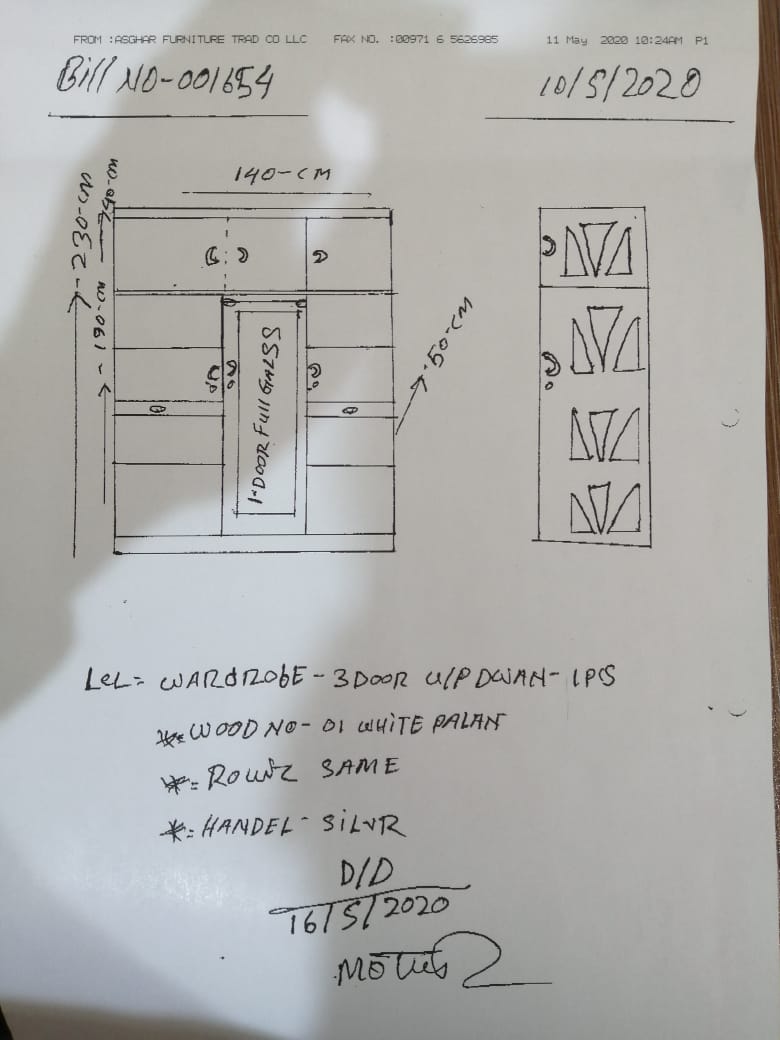 FROM :ASGHAR FURNITURE TRAD CO LLC FAX NO. :00971 6 5626985 11 May 2020 10:24AM P1
Bill NO-001654 10/5/2020
140-CM
230-CM
40-CM
190-CM
50-CM
1-DOOR Full GALSS
WARdROBE-3DOOR U/P DWAN-1PCS
*= WOOD NO-01 WHITE PALAN
*= SAME
*= HANDEL-SILVR
D/D
16/5/2020